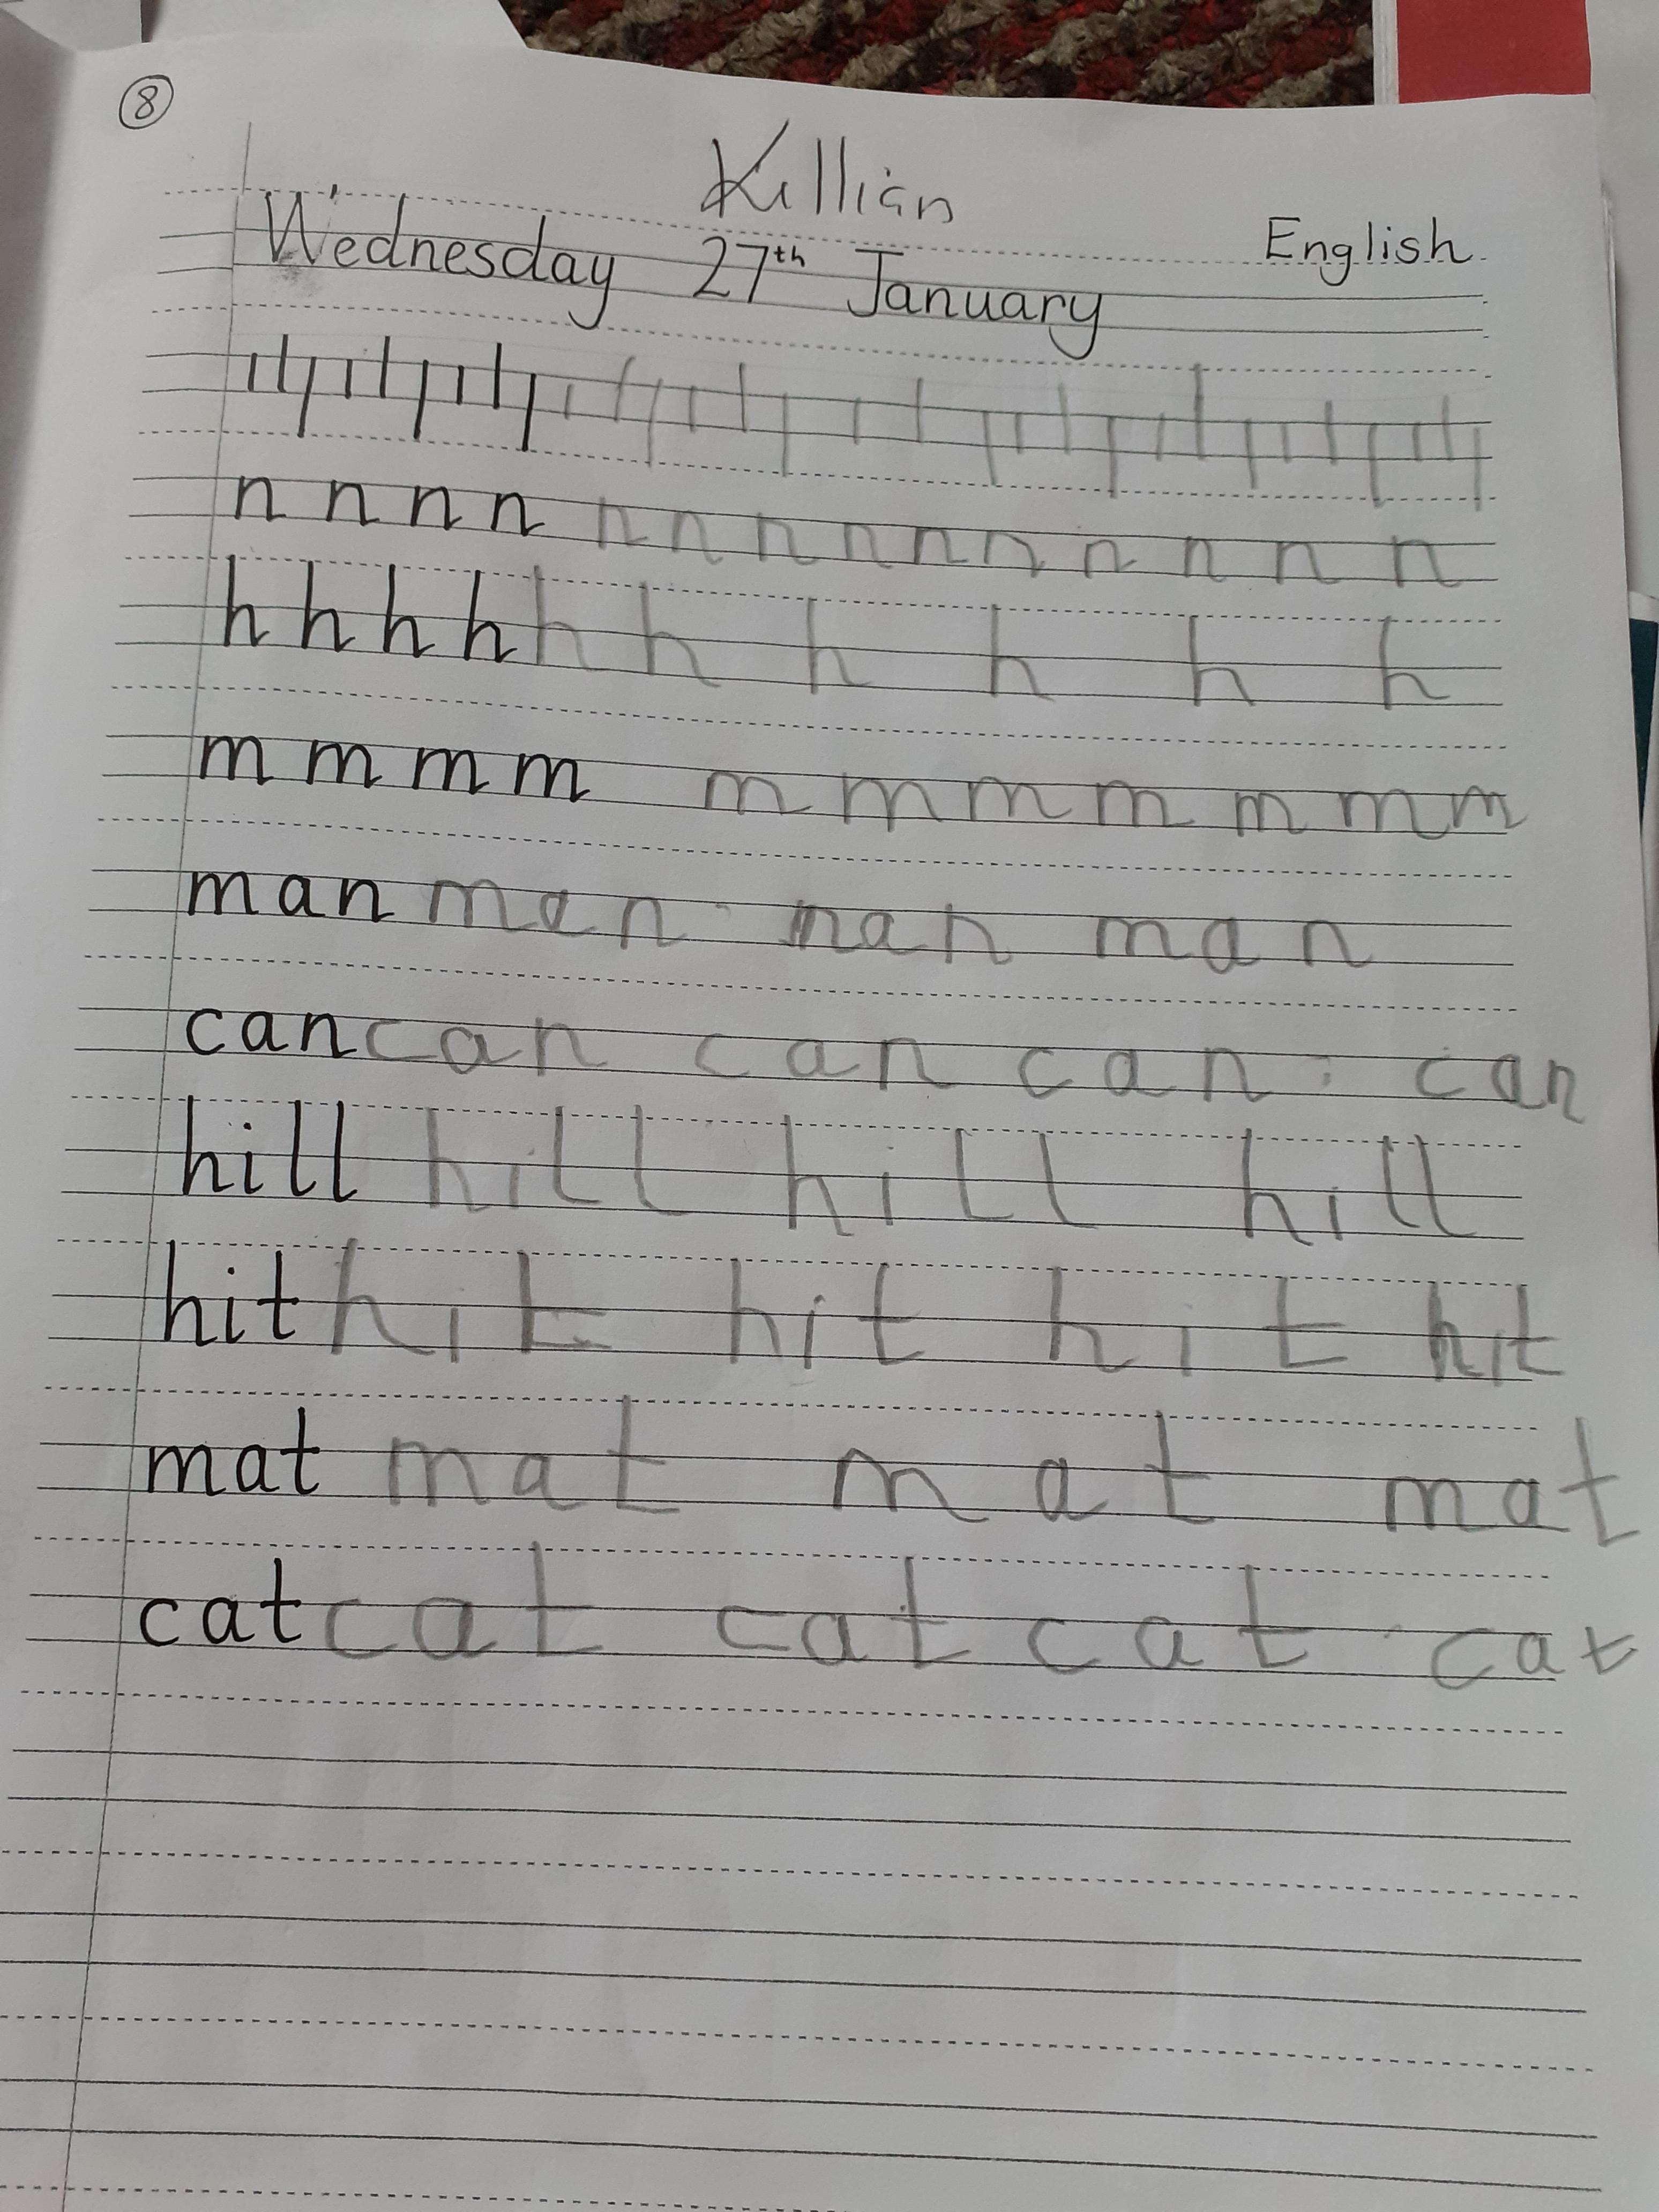 8
Killian
Wednesday 27th January English
n n n n n n n n n n n n n n
h h h h h h h h h h
m m m m m m m m m m m
man man man man
can can can can can
hill hill hill hill
hit hit hit hit hit
mat mat mat mat
cat cat cat cat cat